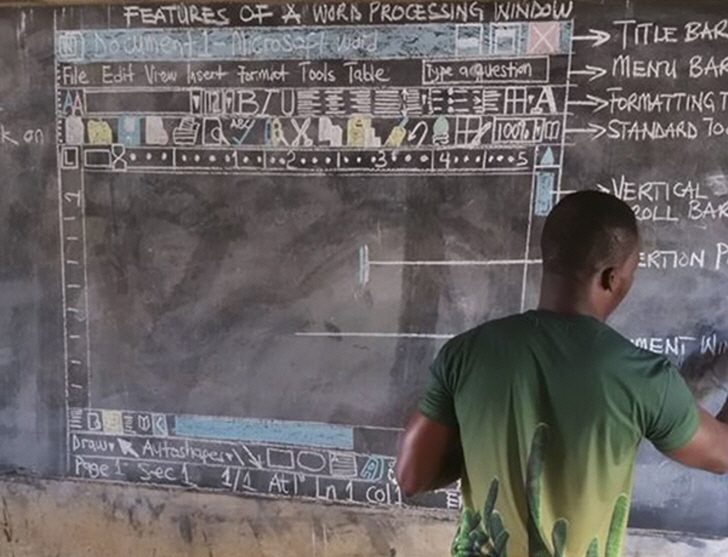 FEATURES OF A WORD PROCESSING WINDOW
W Document 1 - Microsoft word
TITLE BAR
File Edit View Insert Format Tools Table
Type a question
MENU BAR
AA
12
B I U
A
FORMATTING T
k on
ABC
100%
STANDARD TO
L
1 2 3 4 5
VERTICAL
ROLL BAR
2
ERTION P
1
MENT WI
Draw
Autoshapes
A
Page 1 Sec 1 1/1 At 1" Ln 1 Col 1